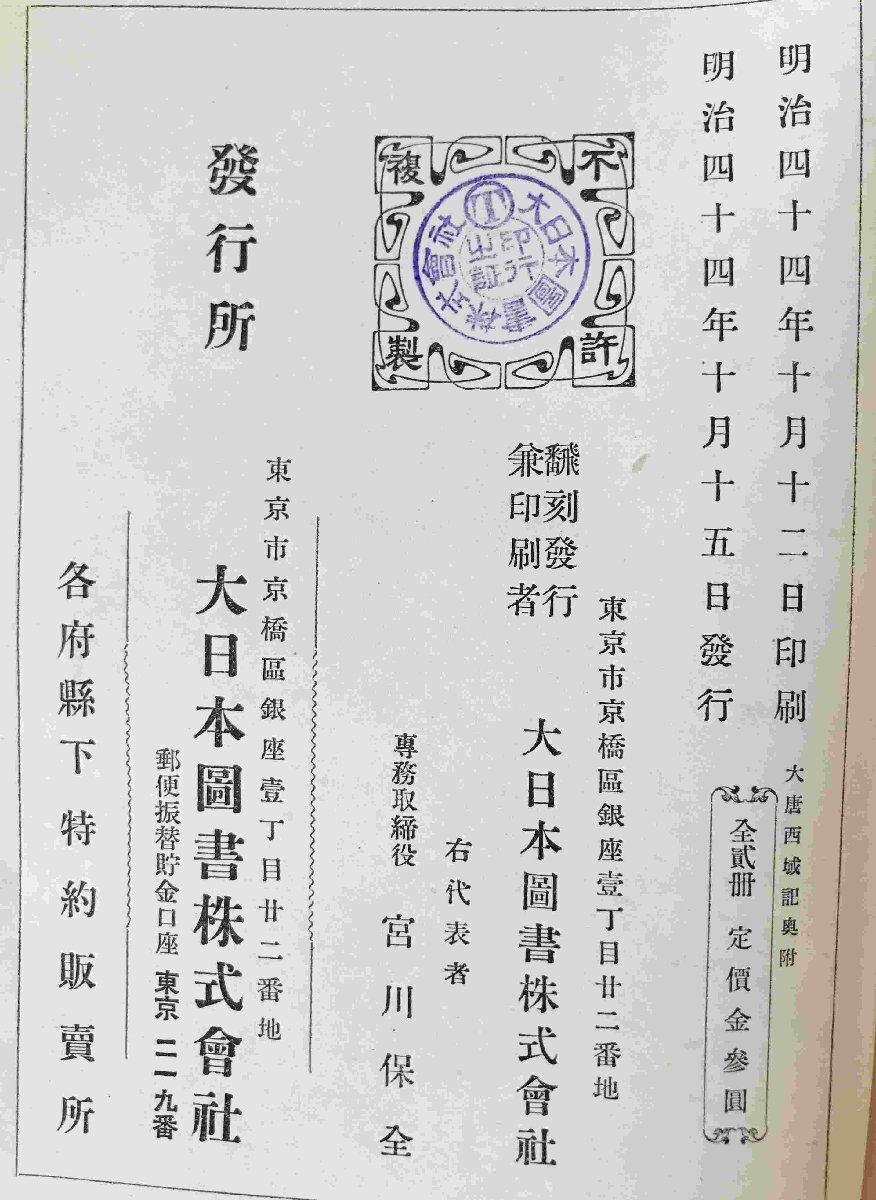 明治四十四年十月十二日印刷
明治四十四年十月十五日發行
大唐西域記奥附
全貳册 定價金參圓
不許複製
大日本圖書株式會社
印行之証
飜刻發行
兼印刷者
東京市京橋區銀座壹丁目廿二番地
大日本圖書株式會社
右代表者
專務取締役 宮川保全
發行所
東京市京橋區銀座壹丁目廿二番地
大日本圖書株式會社
郵便振替貯金口座 東京 二一九番
各府縣下特約販賣所